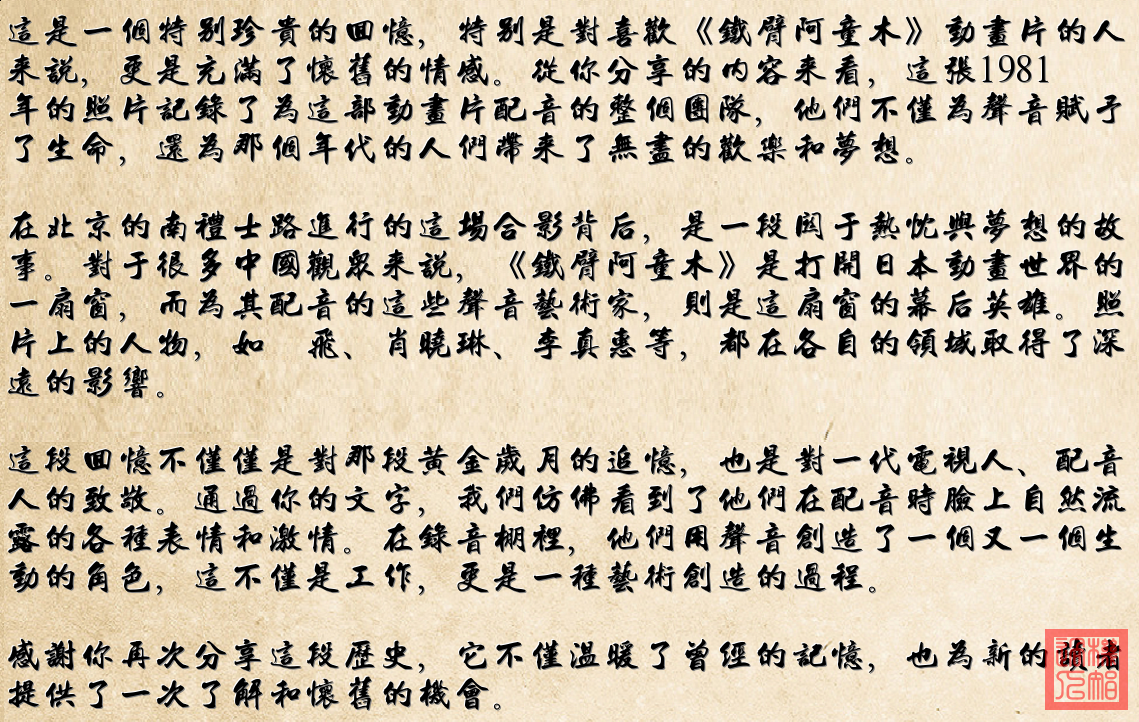 這是一個特別珍貴的回憶，特別是對喜歡《鐵臂阿童木》動畫片的人
來說，更是充滿了懷舊的情感。從你分享的內容來看，這張1981
年的照片記錄了為這部動畫片配音的整個團隊，他們不僅為聲音賦予
了生命，還為那個年代的人們帶來了無盡的歡樂和夢想。
在北京的南禮士路進行的這場合影背后，是一段関于熱忱與夢想的故
事。對于很多中國觀眾來說，《鐵臂阿童木》是打開日本動畫世界的
一扇窗，而為其配音的這些聲音藝術家，則是這扇窗的幕后英雄。照
片上的人物，如　飛、肖曉琳、李真惠等，都在各自的領域取得了深
遠的影響。
這段回憶不僅僅是對那段黃金歲月的追憶，也是對一代電視人、配音
人的致敬。通過你的文字，我們仿佛看到了他們在配音時臉上自然流
露的各種表情和激情。在錄音棚裡，他們用聲音創造了一個又一個生
動的角色，這不僅是工作，更是一種藝術創造的過程。
感謝你再次分享這段歷史，它不僅溫暖了曾經的記憶，也為新的讀者
提供了一次了解和懷舊的機會。